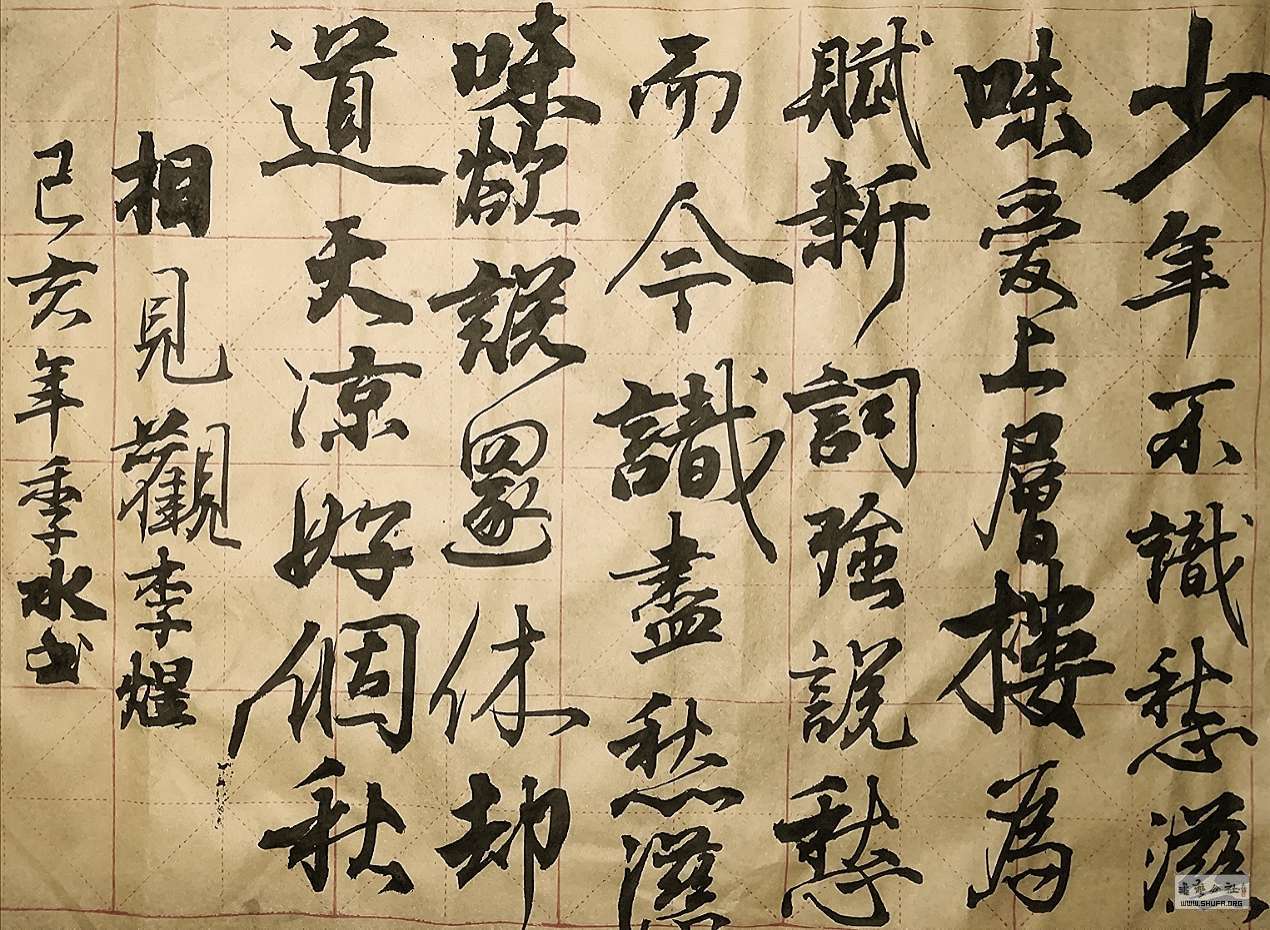 少年不識愁滋
味愛上層樓為
賦新詞強說愁
而今識盡愁滋
味欲說還休却
道天凉好個秋
相見觀李煜
己亥年季水书
書藝公社
WWW.SHUFA.ORG